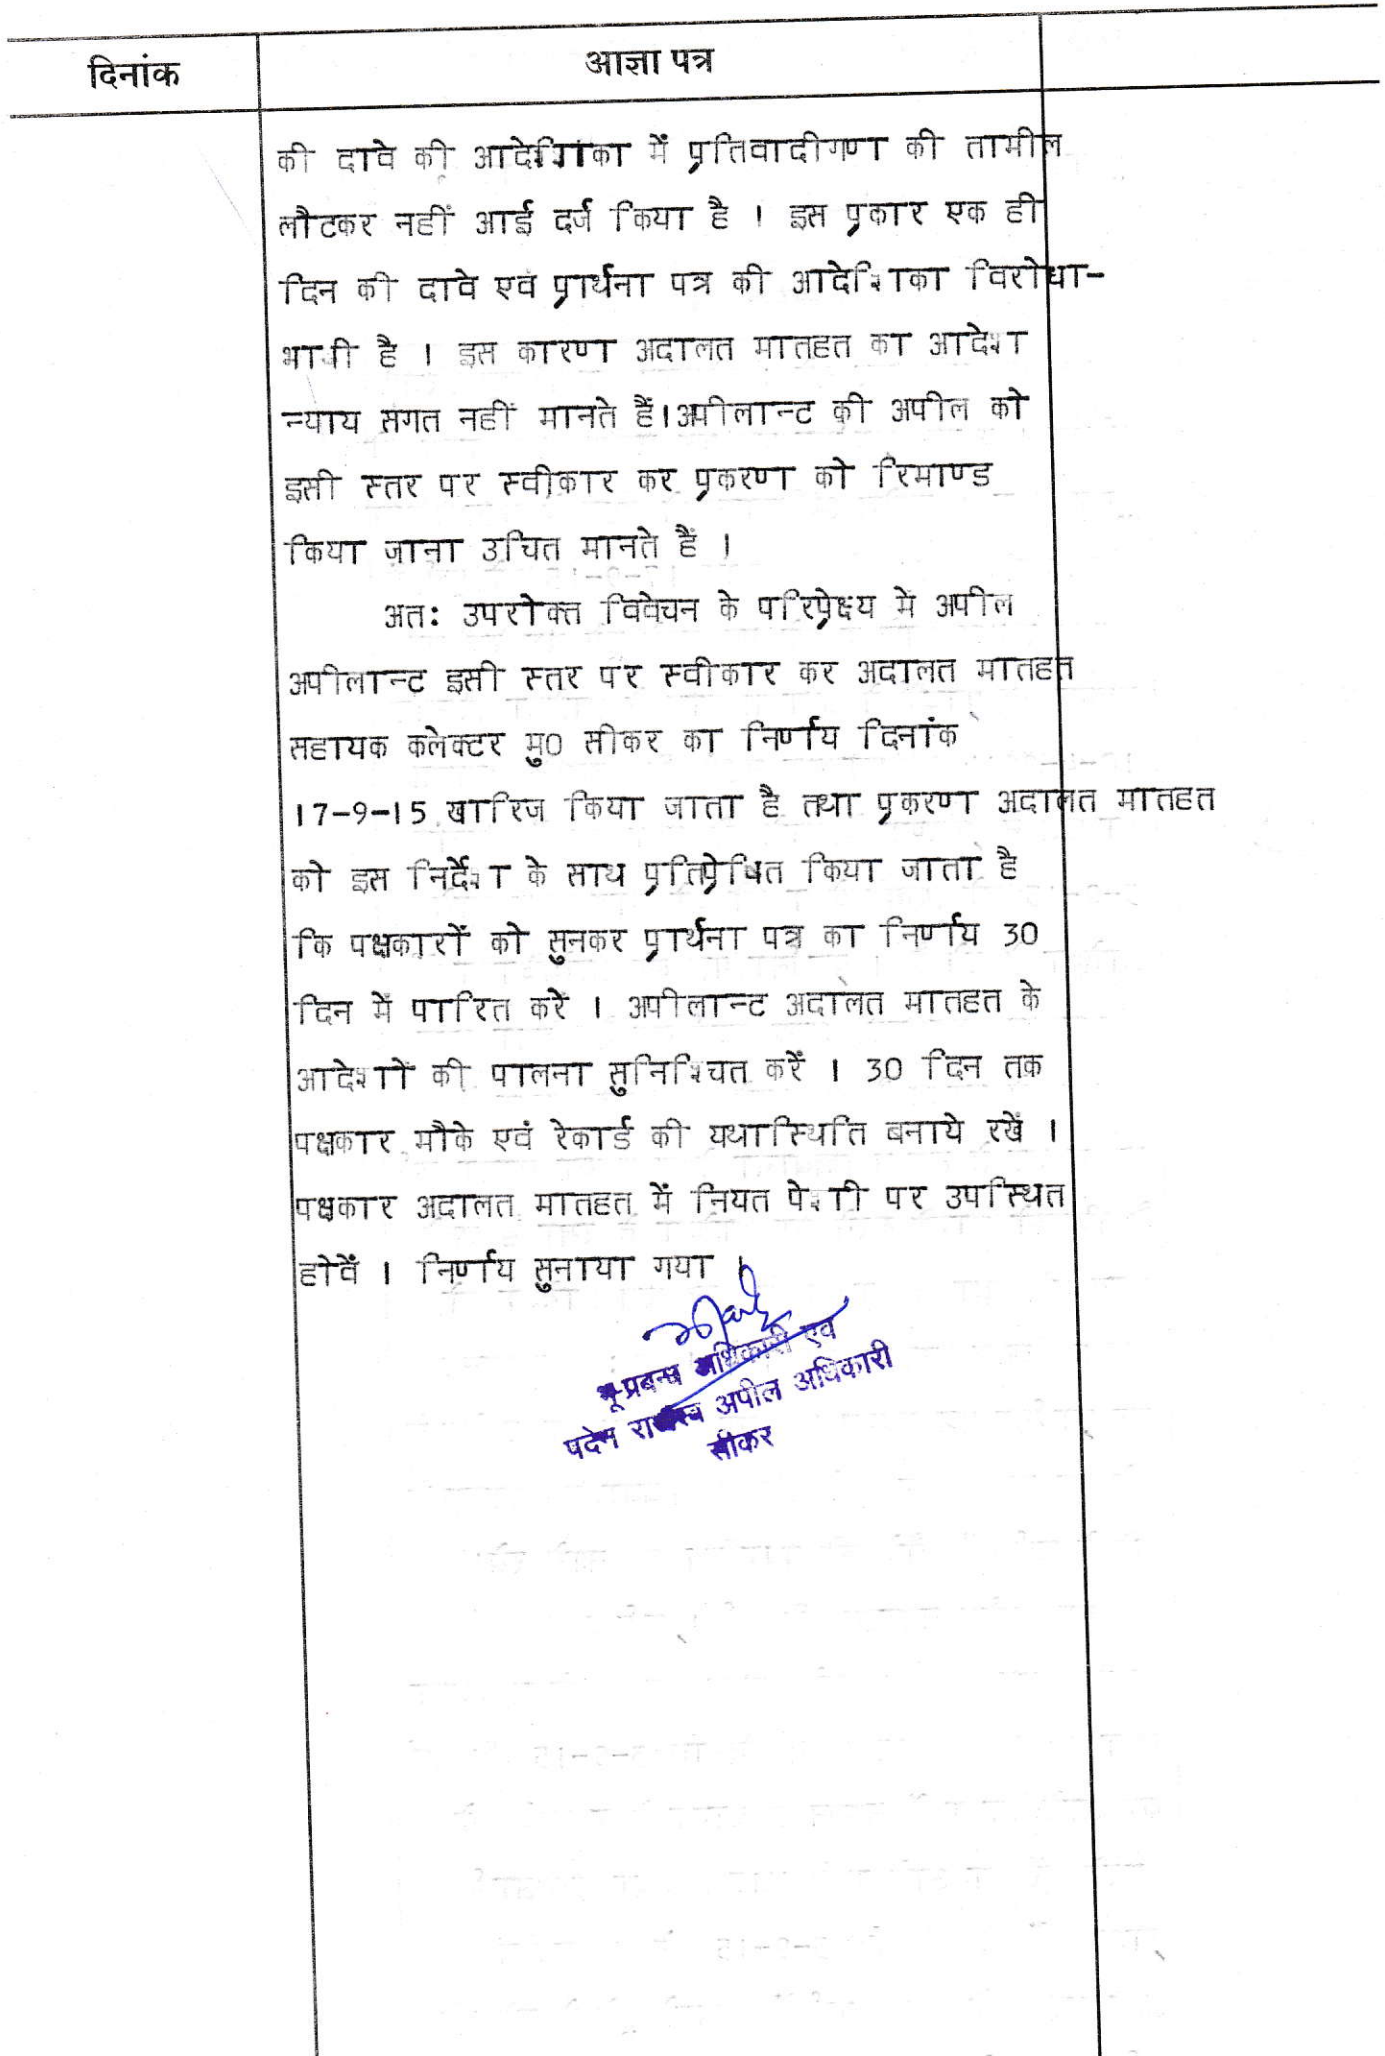 दिनांक
आज्ञा पत्र
की दावे की आदेशिका में प्रतिवादीगण की तामील
लौटकर नहीं आई दर्ज किया है । इस प्रकार एक ही
दिन की दावे एवं प्रार्थना पत्र की आदेशिका विरोधा-
भाषी है । इस कारण अदालत मातहत का आदेश
न्याय संगत नहीं मानते हैं।अपीलान्ट की अपील को
इसी स्तर पर स्वीकार कर प्रकरण को रिमाण्ड
किया जाना उचित मानते हैं ।
अतः उपरोक्त विवेचन के परिप्रेक्ष्य में अपील
अपीलान्ट इसी स्तर पर स्वीकार कर अदालत मातहत
सहायक कलेक्टर मु0 सीकर का निर्णय दिनांक
17-9-15 खारिज किया जाता है तथा प्रकरण अदालत मातहत
को इस निर्देश के साथ प्रतिप्रेषित किया जाता है
कि पक्षकारों को सुनकर प्रार्थना पत्र का निर्णय 30
दिन में पारित करें । अपीलान्ट अदालत मातहत के
आदेशों की पालना सुनिश्चित करें । 30 दिन तक
पक्षकार मौके एवं रेकार्ड की यथास्थिति बनाये रखें ।
पक्षकार अदालत मातहत में नियत पेशी पर उपस्थित
होवें । निर्णय सुनाया गया ।
भू-प्रबन्ध अधिकारी एवं
पदेन राजस्व अपील अधिकारी
सीकर